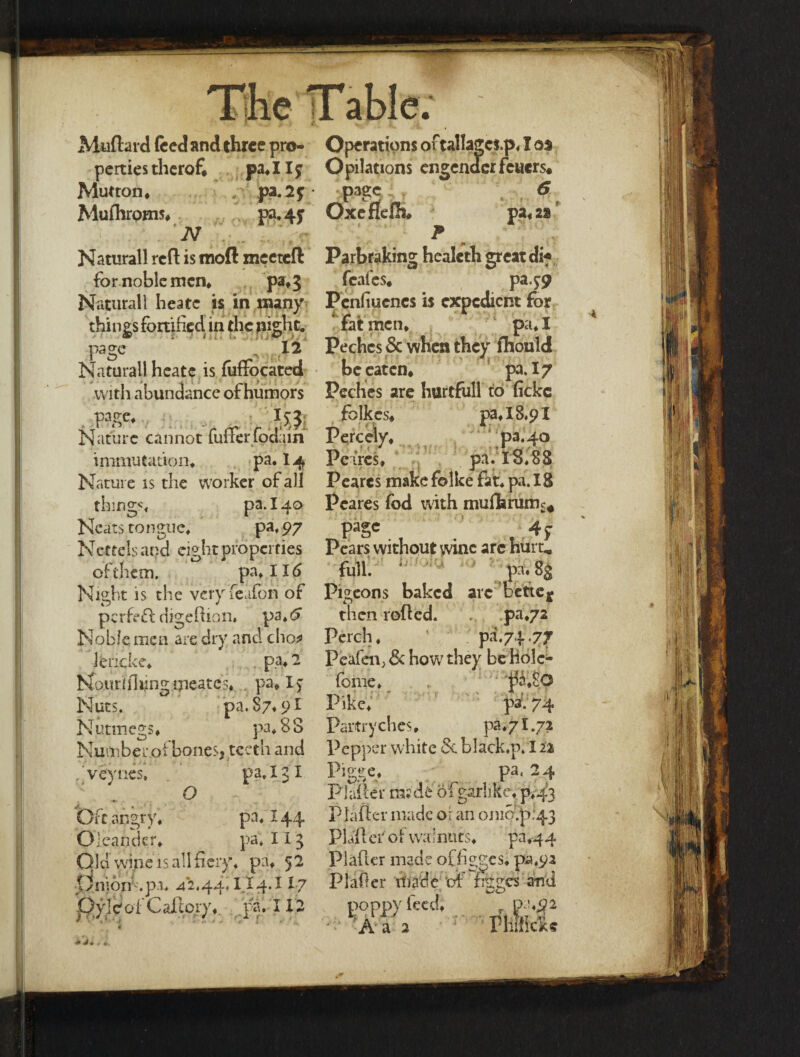 The Table.
Muſtard ſeed and three pro-
perties therof. pa.115
Mutton. pa.25
Muſhroms. pa.45
N
Naturall reſt is moſt meeteſt
for noble men. pa.3
Naturall heate is in many
things fortified in the night.
page 12
Naturall heate is ſuffocated
with abundance of humors
page. 153
Nature cannot ſuffer ſodain
immutation. pa. 14
Nature is the worker of all
things. pa.140
Neats tongue. pa.97
Nettels and eight properties
of them. pa. 116
Night is the very ſeaſon of
perfect digeſtion. pa.6
Noble men are dry and cho-
lericke. pa.2
Nouriſhing meates. pa. 15
Nuts. pa.87.91
Nutmegs. pa.88
Number of bones, teeth and
veynes. pa.131
O
Oft angry. pa. 144
Oleander. pa. 113
Old wine is all fiery. pa. 52
Onions.pa. 42.44.114.117
Oyle of Caſtory. pa. 112
Operations of tallages.p.102
Opilations engender feuers.
page 6
Oxe fleſh. pa.22
P
Parbraking healeth great di-
ſeaſes. pa.59
Penſiuenes is expedient for
fat men. pa.1
Peches & when they ſhould
be eaten. pa.17
Peches are hurtfull to ſicke
folkes. pa.18.91
Percely. pa.40
Peires. pa.18.88
Peares make folke fat. pa.18
Peares ſod with muſhrums.
page 45
Pears without wine are hurt-
full. pa.88
Pigeons baked are better
then roſted. pa.72
Perch. pa.74.77
Peaſen, & how they be hole-
ſome. pa.80
Pike. pa.74
Partryches. pa.71.72
Pepper white & black.p.122
Pigge. pa. 24
Plaſter made of garlike.p.43
Plaſter made of an onio.p.43
Plaſter of walnuts. pa.44
Plaſter made of figges. pa.92
Plaſter made of figges and
poppy ſeed. pa.92
Aa 2
Phiſicks